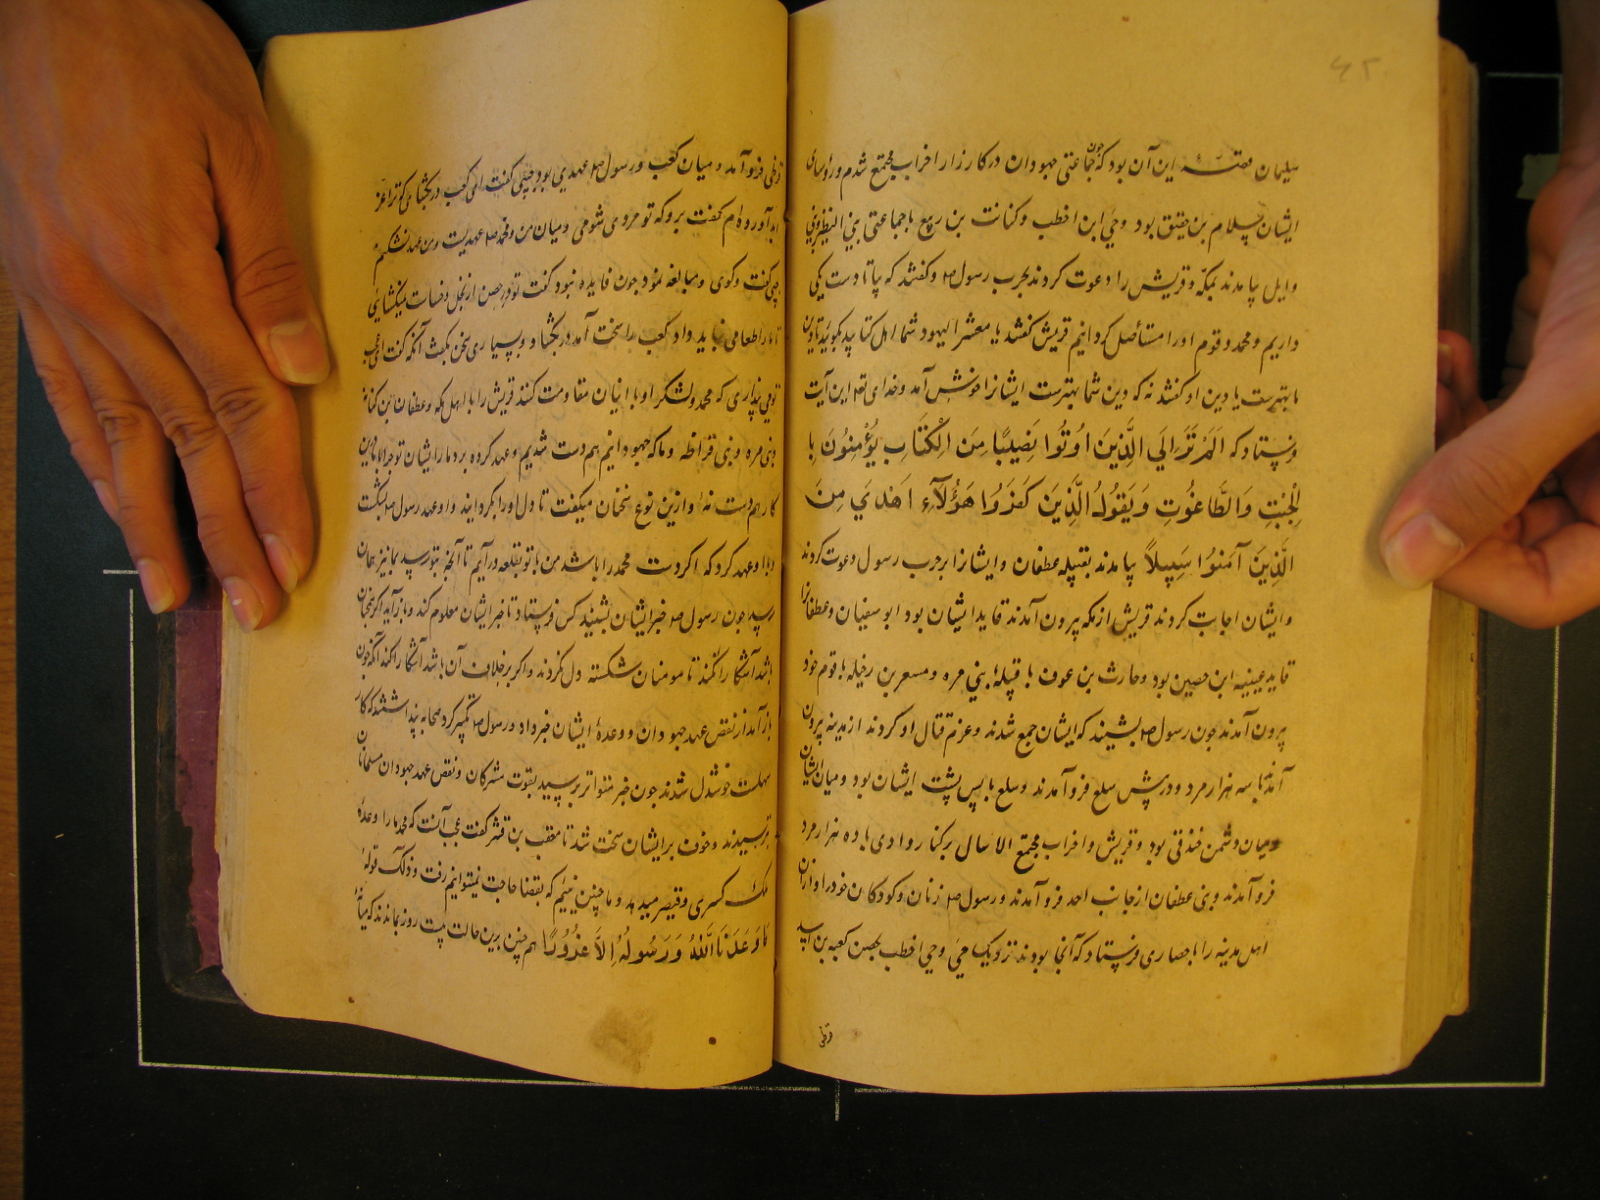 ۴۲
سلیمان قصّه این آن بود که چون جماعتی جهودان در کارزار احزاب مجتمع شدم و روساء
ایشان سلام بن حقیق بود و حیّ ابن اخطب و کنانت بن ربیع با جماعتی بنی النظیر و بنی
وایل بیامدند بمکّه و قریش را دعوت کردند بحرب رسول ص و کفتند که بیا تا دست یکی
داریم و محمد و قوم او را مستأصل کردانیم قریش کفتند یا معشر الیهود شما اهل کتابید بکویید تا دین
ما بهترست یا دین او کفتند نه که دین شما بهترست ایشانرا خوش آمد و خدای تعا این آیت
فرستاد که اَلَمْ تَرَ اِلَی الَّذِینَ اُوتُوا نَصِیبًا مِنَ الْکِتَابِ یُؤْمِنُونَ بِا
لْجِبْتِ وَالطَّاغُوتِ وَیَقُولُ الَّذِینَ کَفَرُوا هَؤُلَآءِ اَهْدَی مِنَ
الَّذِینَ آمَنُوا سَبِیلاً بیامدند بقبیله عطفان و ایشانرا بر حرب رسول دعوت کردند
و ایشان اجابت کردند قریش از مکه بیرون آمدند قاید ایشان بود ابو سفیان و عطفانرا
قاید عیینیه ابن حصین بود و حارث بن عوف با قبیلهٔ بنی مره و مسعر بن رخیله با قوم خود
بیرون آمدند جون رسول ص بشنیند که ایشان جمع شدند و عزم قتال او کردند از مدینه بیرون
آمد با سه هزار مرد و در پیش سلع فرو آمدند و سلع با پس پشت ایشان بود و میان ایشان
و میان دشمن خندقی بود و قریش و احزاب مجتمع الاسال بر کنار وادی با ده هزار مرد
فرو آمدند و بنی عطفان از جانب احد فرو آمدند و رسول ص زنان و کودکان خود را و ازان
اهل مدینه را با حصاری فرستاد که آنجا بودند نزدیک حیّ و حیّ اخطب بحصن کعبه بن اسد
قرظی
قرظی فرو آمد و میان کعب و رسول ص عهدی بود حیّی کفت ای کعب در بکشای که ترا عز
ابد آورده ام کفت برو که تو مردی شومی و میان من و محمد ص عهدیست و من عهد نشکنم
حیّی کفت و کوی و مبالغه نمود جون فایده نبود کفت تو در حصن از بخل و خساست نمیکشایی
تا مرا طعامی نباید داد کعب را سخت آمد در بکشاد و بسیاری سخن بکفت آنکه کفت ای کعب
تو می پنداری که محمد و لشکر او با اینان مقاومت کنند قریش را با اهل مکه و عطفان بن کنانه
و بنی مره و بنی قراظه و ما که جهودانیم هم دست شدیم و عهد کرده بردما را ایشان تو چرا با ما درین
کار هم دست نهٔ و ازین نوع سخنان میکفت تا دل او را بکردانید و او عهد رسول ص بشکست
و با او عهد کرد که اکر دست محمد را باشد من با تو بقلعه در آیم تا آنجه بتو رسد بما نیز همان
رسد جون رسول ص خبر ایشان بشنید کس فرستاد تا خبر ایشان معلوم کند و باز آید اکر همچنان
باشد آشکارا نکند تا مومنان شکسته دل نکردند و اکر بر خلاف آن باشد آشکارا کند آنکه جون
باز آمد از نقض عهد جهودان و وعدهٔ ایشان خبر داد و رسول ص تکبیر کرد صحابه پنداشتند که کار
سهلت خوشدل شدند جون خبر متواتر برسید بقوت مشرکان و نقض عهد جهودان مسلمانان
بترسیدند و خوف بر ایشان سخت شد تا معقب بن قشر کفت عجب آنست که محمد ما را وعدهٔ
ملک کسری و قیصر میدهد و ما چنین نییم که بقضا حاجت نمیتوانیم رفت و ذلک قولهٗ
مَا وَعَدَنَا اللّٰهُ وَرَسُولُهُ اِلاَّ غُرُورًا هم چنین برین حالت بیست روز بماندند که میانهٔ